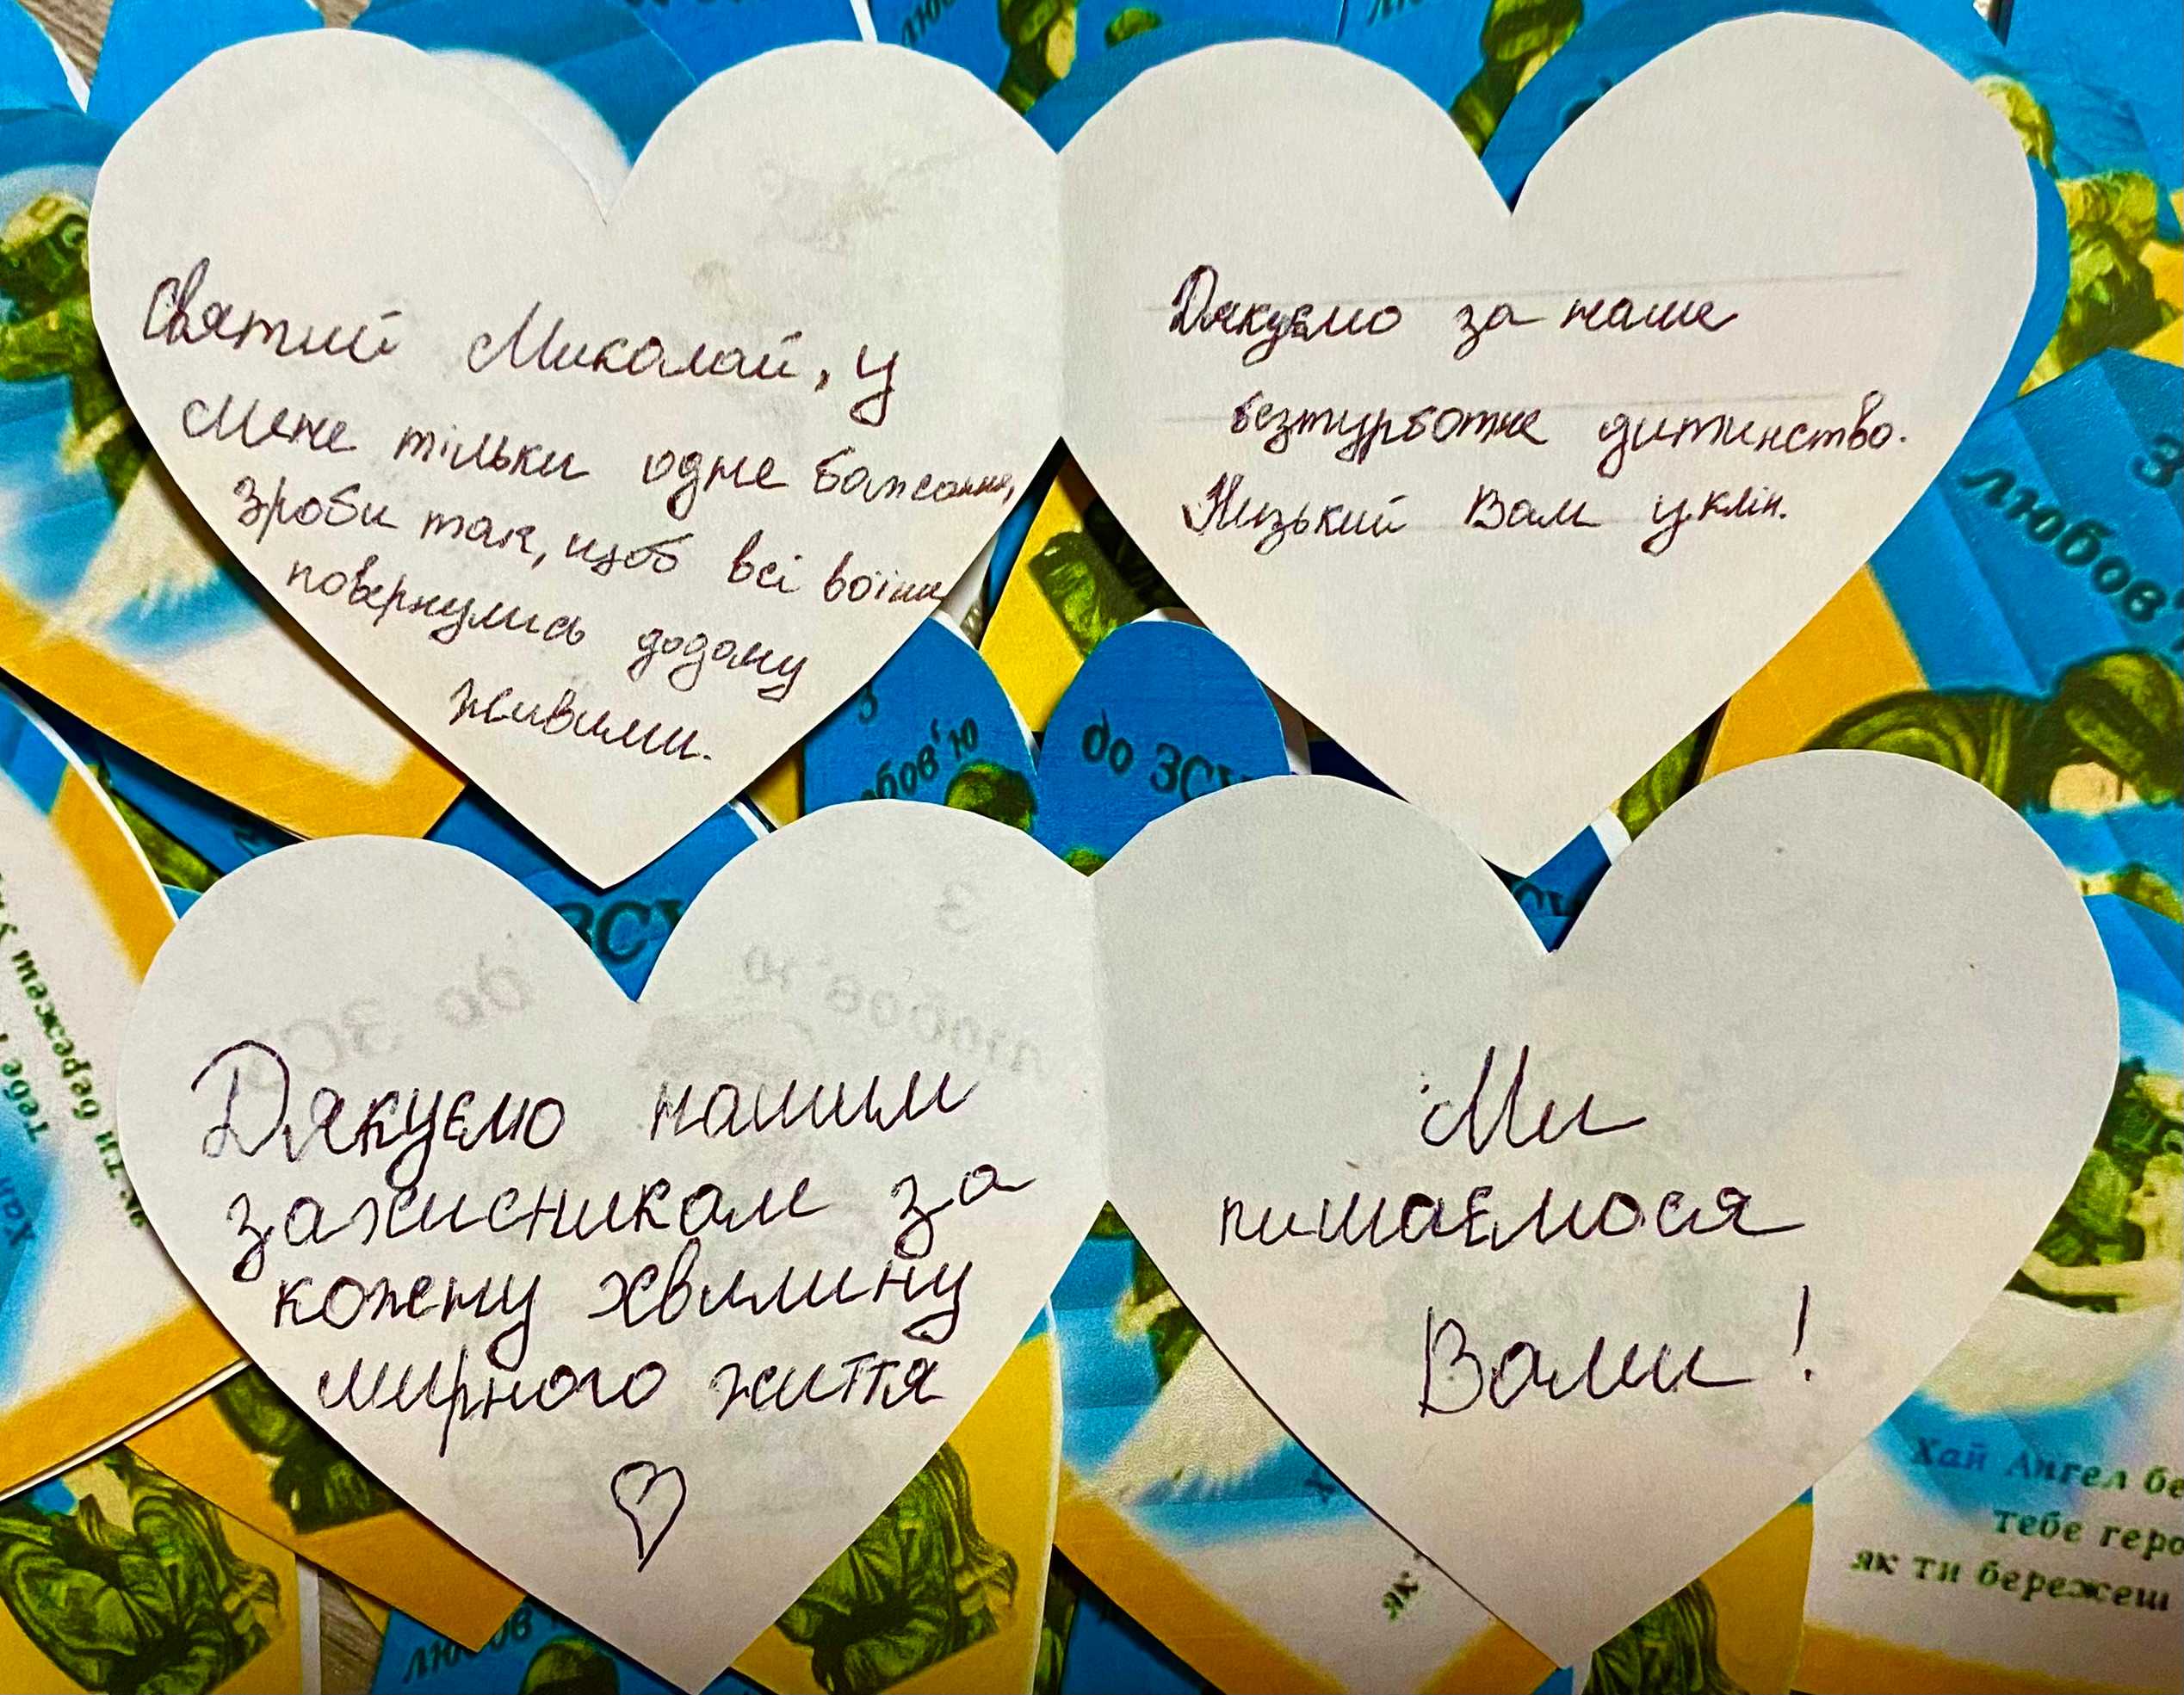 Святий Миколай, у
мене тільки одне бажання,
зроби так, щоб всі воїни
повернулись додому
живими.
Дякуємо за наше
безтурботне дитинство.
Низький Вам уклін.
З
любов'ю
до ЗСУ
З
любов
ЗСУ
Дякуємо нашим
захисникам за
кожену хвилину
мирного життя
Ми
пишаємося
Вами!
Хай Ангел бе
тебе геро
як ти бережеш
Тебе
як ти бережеш
Хай
любов
як